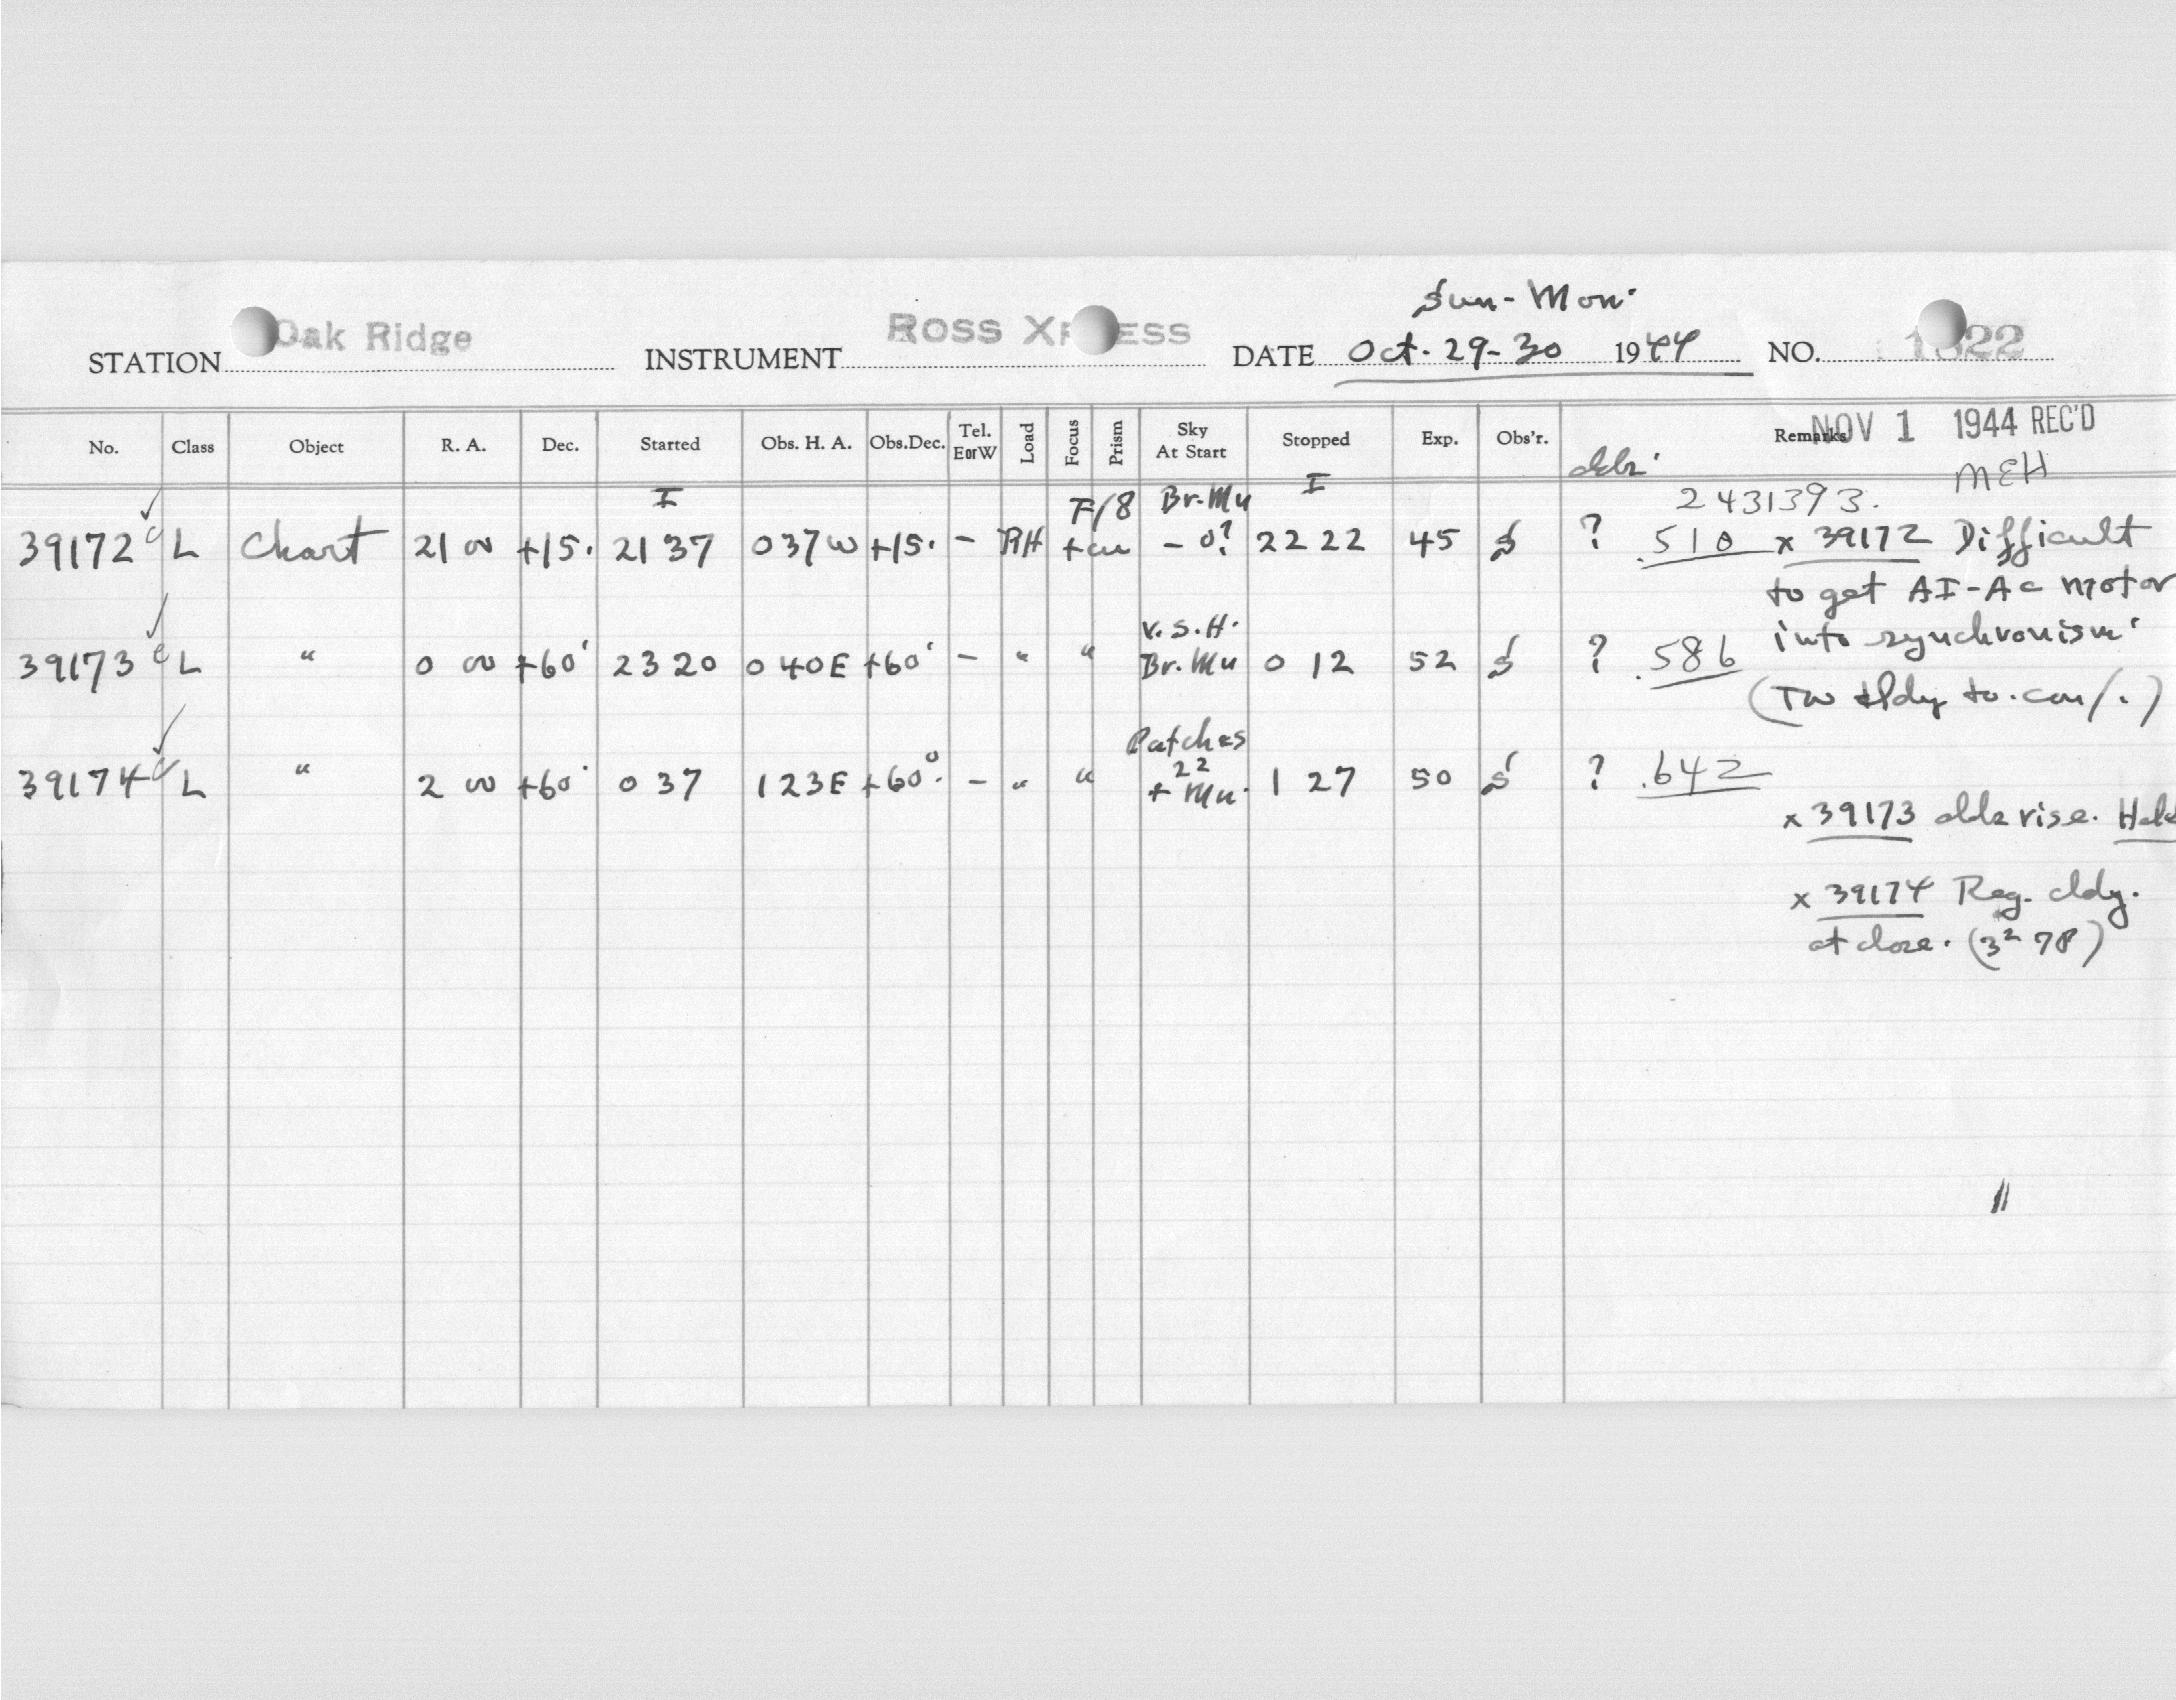 Sun-Mon.
STATION Oak Ridge INSTRUMENT ROSS X ESS DATE Oct. 29-30 1944 NO. 1822
No. Class Object R. A. Dec. Started Obs. H. A. Obs.Dec. Tel. EorW Load Focus Prism Sky At Start Stopped Exp. Obs'r. Remarks
NOV 1 1944 REC'D
MEH
I F/8 Br.Mu I 2431393.
39172 L Chart 21 00 +15. 21 37 0 37 W +15. - RH - 0? 22 22 45 S ? .510 x 39172 Difficult
to get AI-Ac motor
into synchronism.
V.S.H.
39173 L " 0 00 +60 23 20 0 40 E +60 - " " Br.Mu 0 12 52 S ? .586
Patches
39174 L " 2 00 +60 0 37 1 23 E +60° - " " 22 + Mu. 1 27 50 S ? .642
x 39173 rise.
x 39174 Reg. cldy.
at close. (3² 78)